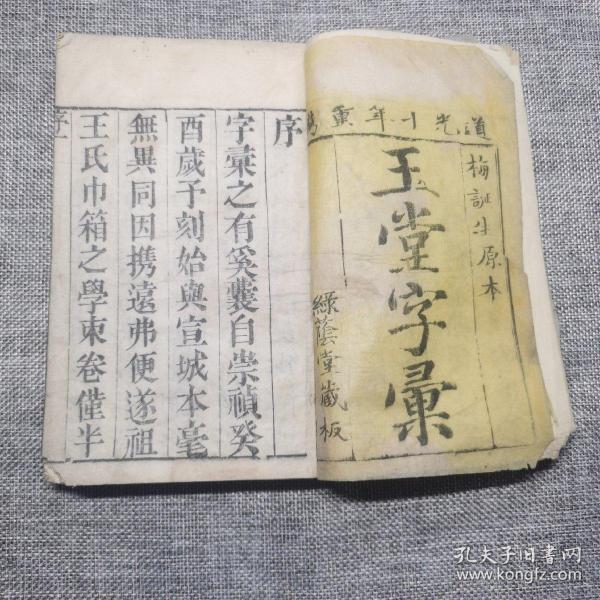 道光十年重
梅誕生原本
玉堂字彙
綠蔭堂藏板
序
字彙之有奚囊自崇禎癸
酉歲予刻始與宣城本毫
無異同因携遠弗便遂祖
王氏巾箱之學束卷僅半
序
孔夫子旧书网
www.kongfz.com